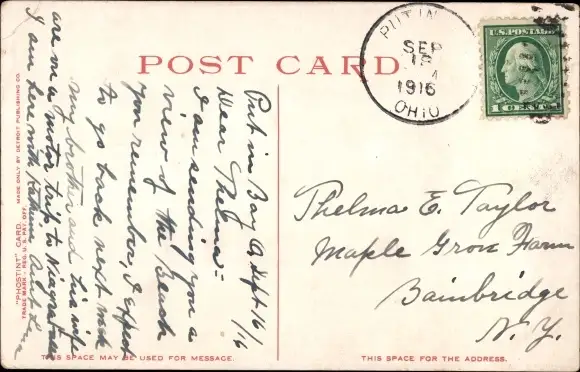 POST CARD
PUT IN
SEP
18
1916
OHIO
U.S. POSTAGE
1 CENT 1
Put in Bay O, Sept 16/16
Dear Thelma:-
I am sending you a
view of the Beach
you remember, I expect
to go back next week
my brother and his wife
are on a motor trip to Niagara
I am here with Aunt
Thelma E. Taylor
Maple Grove Farm
Bainbridge
N.Y.
"PHOSTINT" CARD. MADE ONLY BY DETROIT PUBLISHING CO.
TRADE MARK - REG. U.S. PAT. OFF.
THIS SPACE MAY BE USED FOR MESSAGE.
THIS SPACE FOR THE ADDRESS.